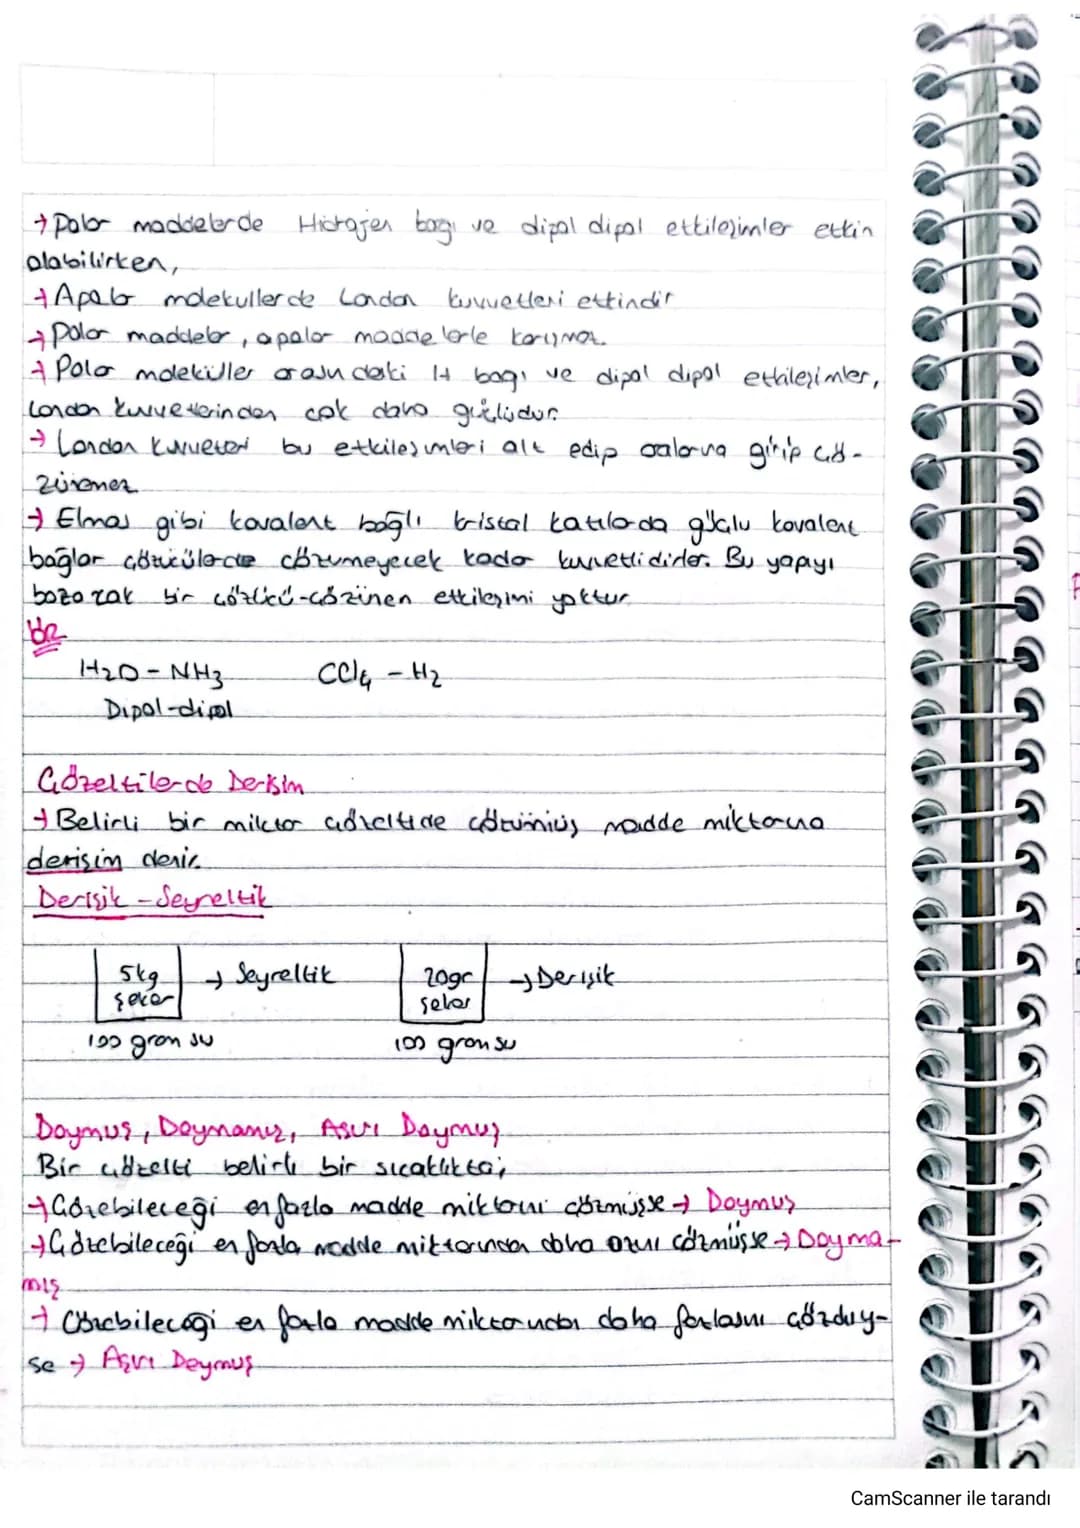 → Polar maddelerde Hidrojen bağı ve dipol dipol etkileşimler etkin
olabilirken,
→ Apolar moleküllerde London kuvvetleri etkindir
→ Polar maddeler, apolar maddelerle karışmaz.
→ Polar moleküller arasındaki H bağı ve dipol dipol etkileşimler,
London kuvvetlerinden çok daha güçlüdür.
→ London kuvvetleri bu etkileşimleri alt edip aralarına girip çö-
zünemez
→ Elmas gibi kovalent bağlı kristal katılarda güçlü kovalent
bağlar çözücülerde çözünmeyecek kadar kuvvetlidirler. Bu yapıyı
bozacak bir çözücü-çözünen etkileşimi yoktur
H₂O - NH₃ CCl₄ - H₂
Dipol-dipol
Çözeltilerde Derişim
→ Belirli bir miktar çözeltide çözünmüş madde miktarına
derişim denir.
Derişik - Seyreltik
5kg → Seyreltik 20gr → Derişik
şeker şeker
100 gram su 100 gram su
Doymuş, Doymamış, Aşırı Doymuş
Bir çözelti belirli bir sıcaklıkta;
→ Çözebileceği en fazla madde miktarını çözmüşse → Doymuş
→ Çözebileceği en fazla madde miktarından daha azını çözmüşse → Doyma-
mış
→ Çözebileceği en fazla madde miktarından daha fazlasını çözdüy-
se → Aşırı Doymuş
CamScanner ile tarandı